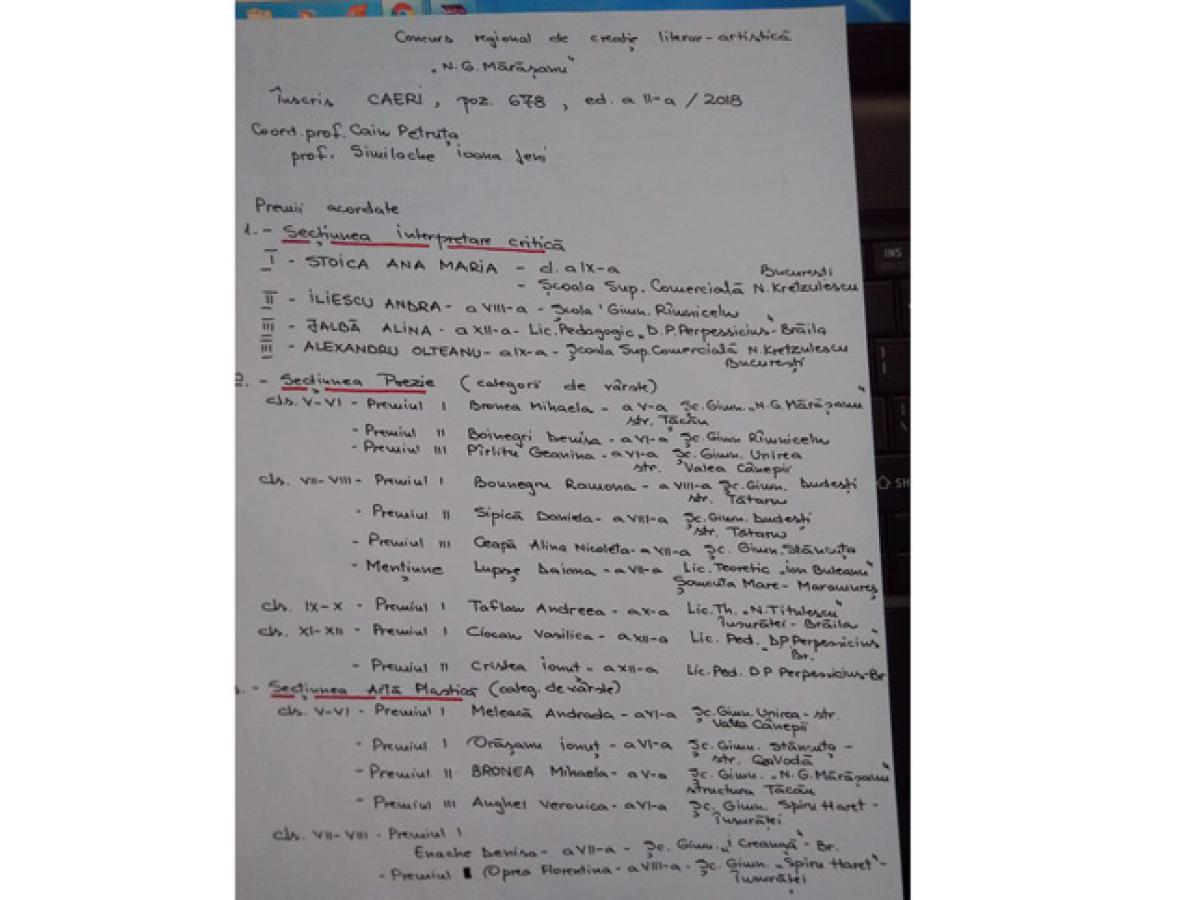 Concurs regional de creație literar-artistică
„N.G. Mărășanu"
Înscris CAERI, poz. 678, ed. a II-a / 2018
Coord. prof. Caiu Petruța
prof. Similache Ioana Jeni
Premii acordate
1. - Secțiunea interpretare critică
I - STOICA ANA MARIA - cl. a IX-a București
- Școala Sup. Comercială N. Kretzulescu
II - ILIESCU ANDRA - a VIII-a - Școla Gimn. Rîmnicelu
III - JALBĂ ALINA - a XII-a - Lic. Pedagogic „D.P. Perpessicius" - Brăila
III - ALEXANDRU OLTEANU - a IX-a - Școala Sup. Comercială N. Kretzulescu
București
2. - Secțiunea Poezie (categorii de vârste)
cls. V-VI - Premiul I Bronea Mihaela - a V-a Șc. Gimn. „N.G. Mărășanu"
str. Tăcău
- Premiul II Boinegri Denisa - a VI-a Șc. Gimn Rîmnicelu
- Premiul III Pîrlitu Geanina - a VI-a Șc. Gimn. Unirea
str. Valea Cânepii
cls. VII-VIII - Premiul I Bounegru Ramona - a VIII-a Șc. Gimn. Budești
str. Tătaru
- Premiul II Sipică Daniela - a VIII-a Șc. Gimn. Budești
str. Tătaru
- Premiul III Ceapă Alina Nicoleta - a VII-a Șc. Gimn. Stăncuța
- Mențiune Lupșe Daiana - a VII-a Lic. Teoretic „Ion Buteanu"
Șomcuta Mare - Maramureș
cls. IX-X - Premiul I Taflan Andreea - a X-a Lic. Th. „N. Titulescu"
Însurăței - Brăila
cls. XI-XII - Premiul I Ciocan Vasilica - a XII-a Lic. Ped. „D.P. Perpessicius"
Br.
- Premiul II Cristea Ionuț - a XII-a Lic. Ped. D P Perpessicius - Br
. - Secțiunea Artă Plastică (categ. de vârste)
cls. V-VI - Premiul I Meleacă Andrada - a VI-a Șc. Gimn. Unirea - str.
Valea Cânepii
- Premiul I Orășanu Ionuț - a VI-a Șc. Gimn. Stăncuța -
str.
- Premiul II BRONEA Mihaela - a V-a Șc. Gimn. „N.G. Mărășanu"
structura Tăcău
- Premiul III Anghel Veronica - a VI-a Șc. Gimn. Spiru Haret -
Însurăței
cls. VII-VIII - Premiul I
Enache Denisa - a VII-a - Șc. Gimn. „I Creangă" - Br.
- Premiul Oprea Florentina - a VIII-a - Șc. Gimn. „Spiru Haret" -
Însurăței
INS
SH